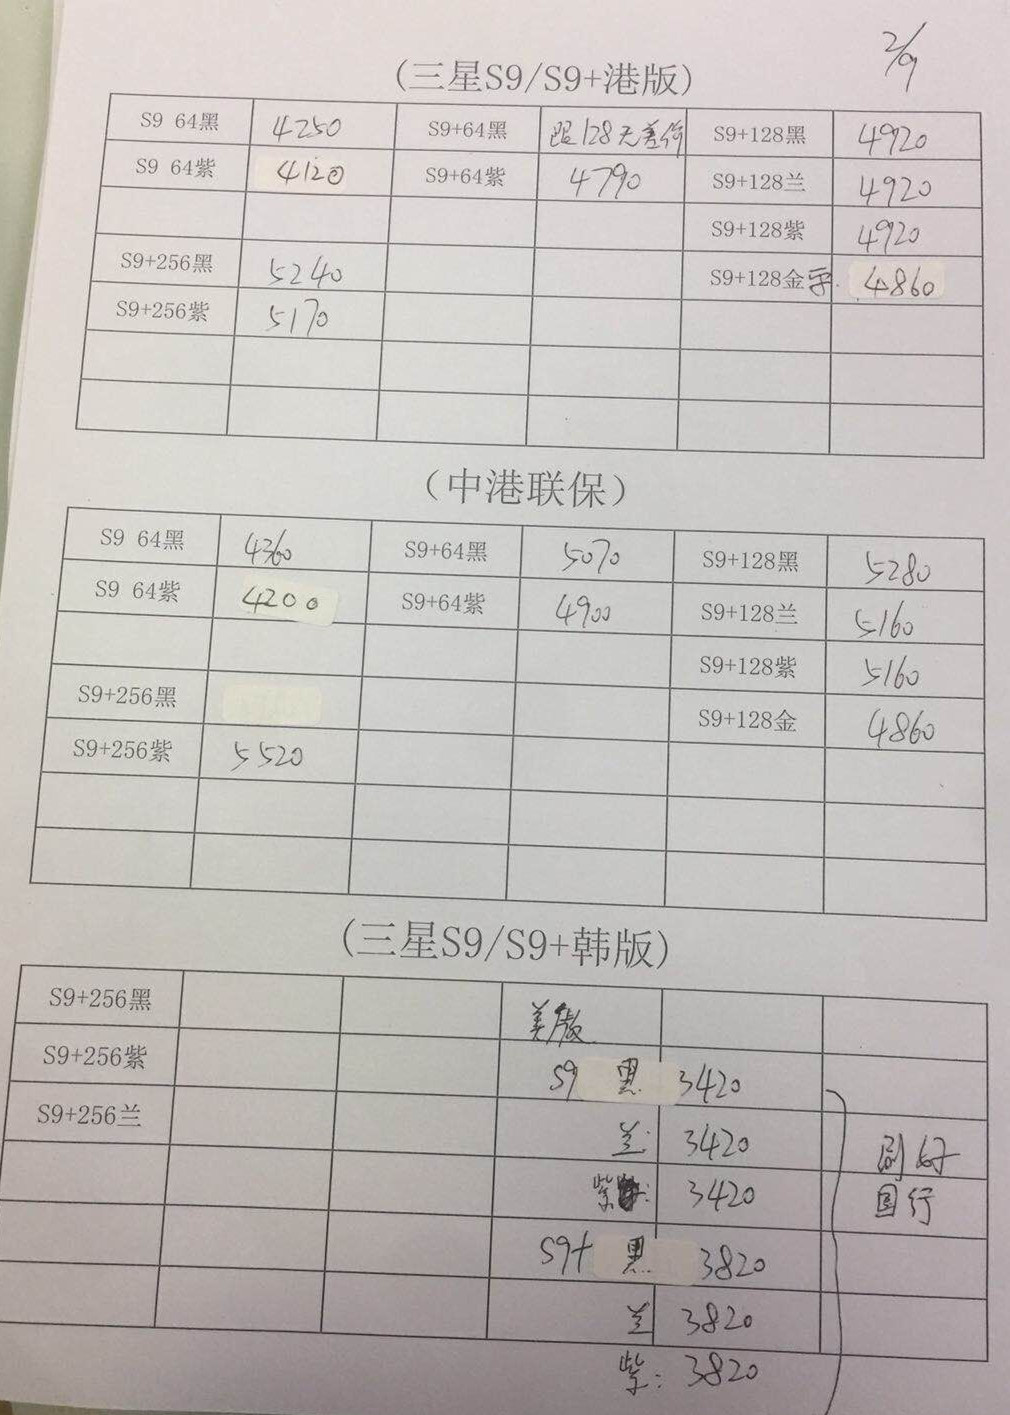 2/9
(三星S9/S9+港版)
S9 64黑 4250 S9+64黑 跟128无差价 S9+128黑 4920
S9 64紫 4120 S9+64紫 4790 S9+128兰 4920
S9+128紫 4920
S9+256黑 5240 S9+128金 4860
S9+256紫 5170
(中港联保)
S9 64黑 4360 S9+64黑 5070 S9+128黑 5280
S9 64紫 4200 S9+64紫 4900 S9+128兰 5160
S9+128紫 5160
S9+256黑 S9+128金 4860
S9+256紫 5520
(三星S9/S9+韩版)
S9+256黑 美版
S9+256紫 S9 黑 3420
S9+256兰 兰: 3420 刷好
紫: 3420 国行
S9+ 黑 3820
兰 3820
紫: 3820